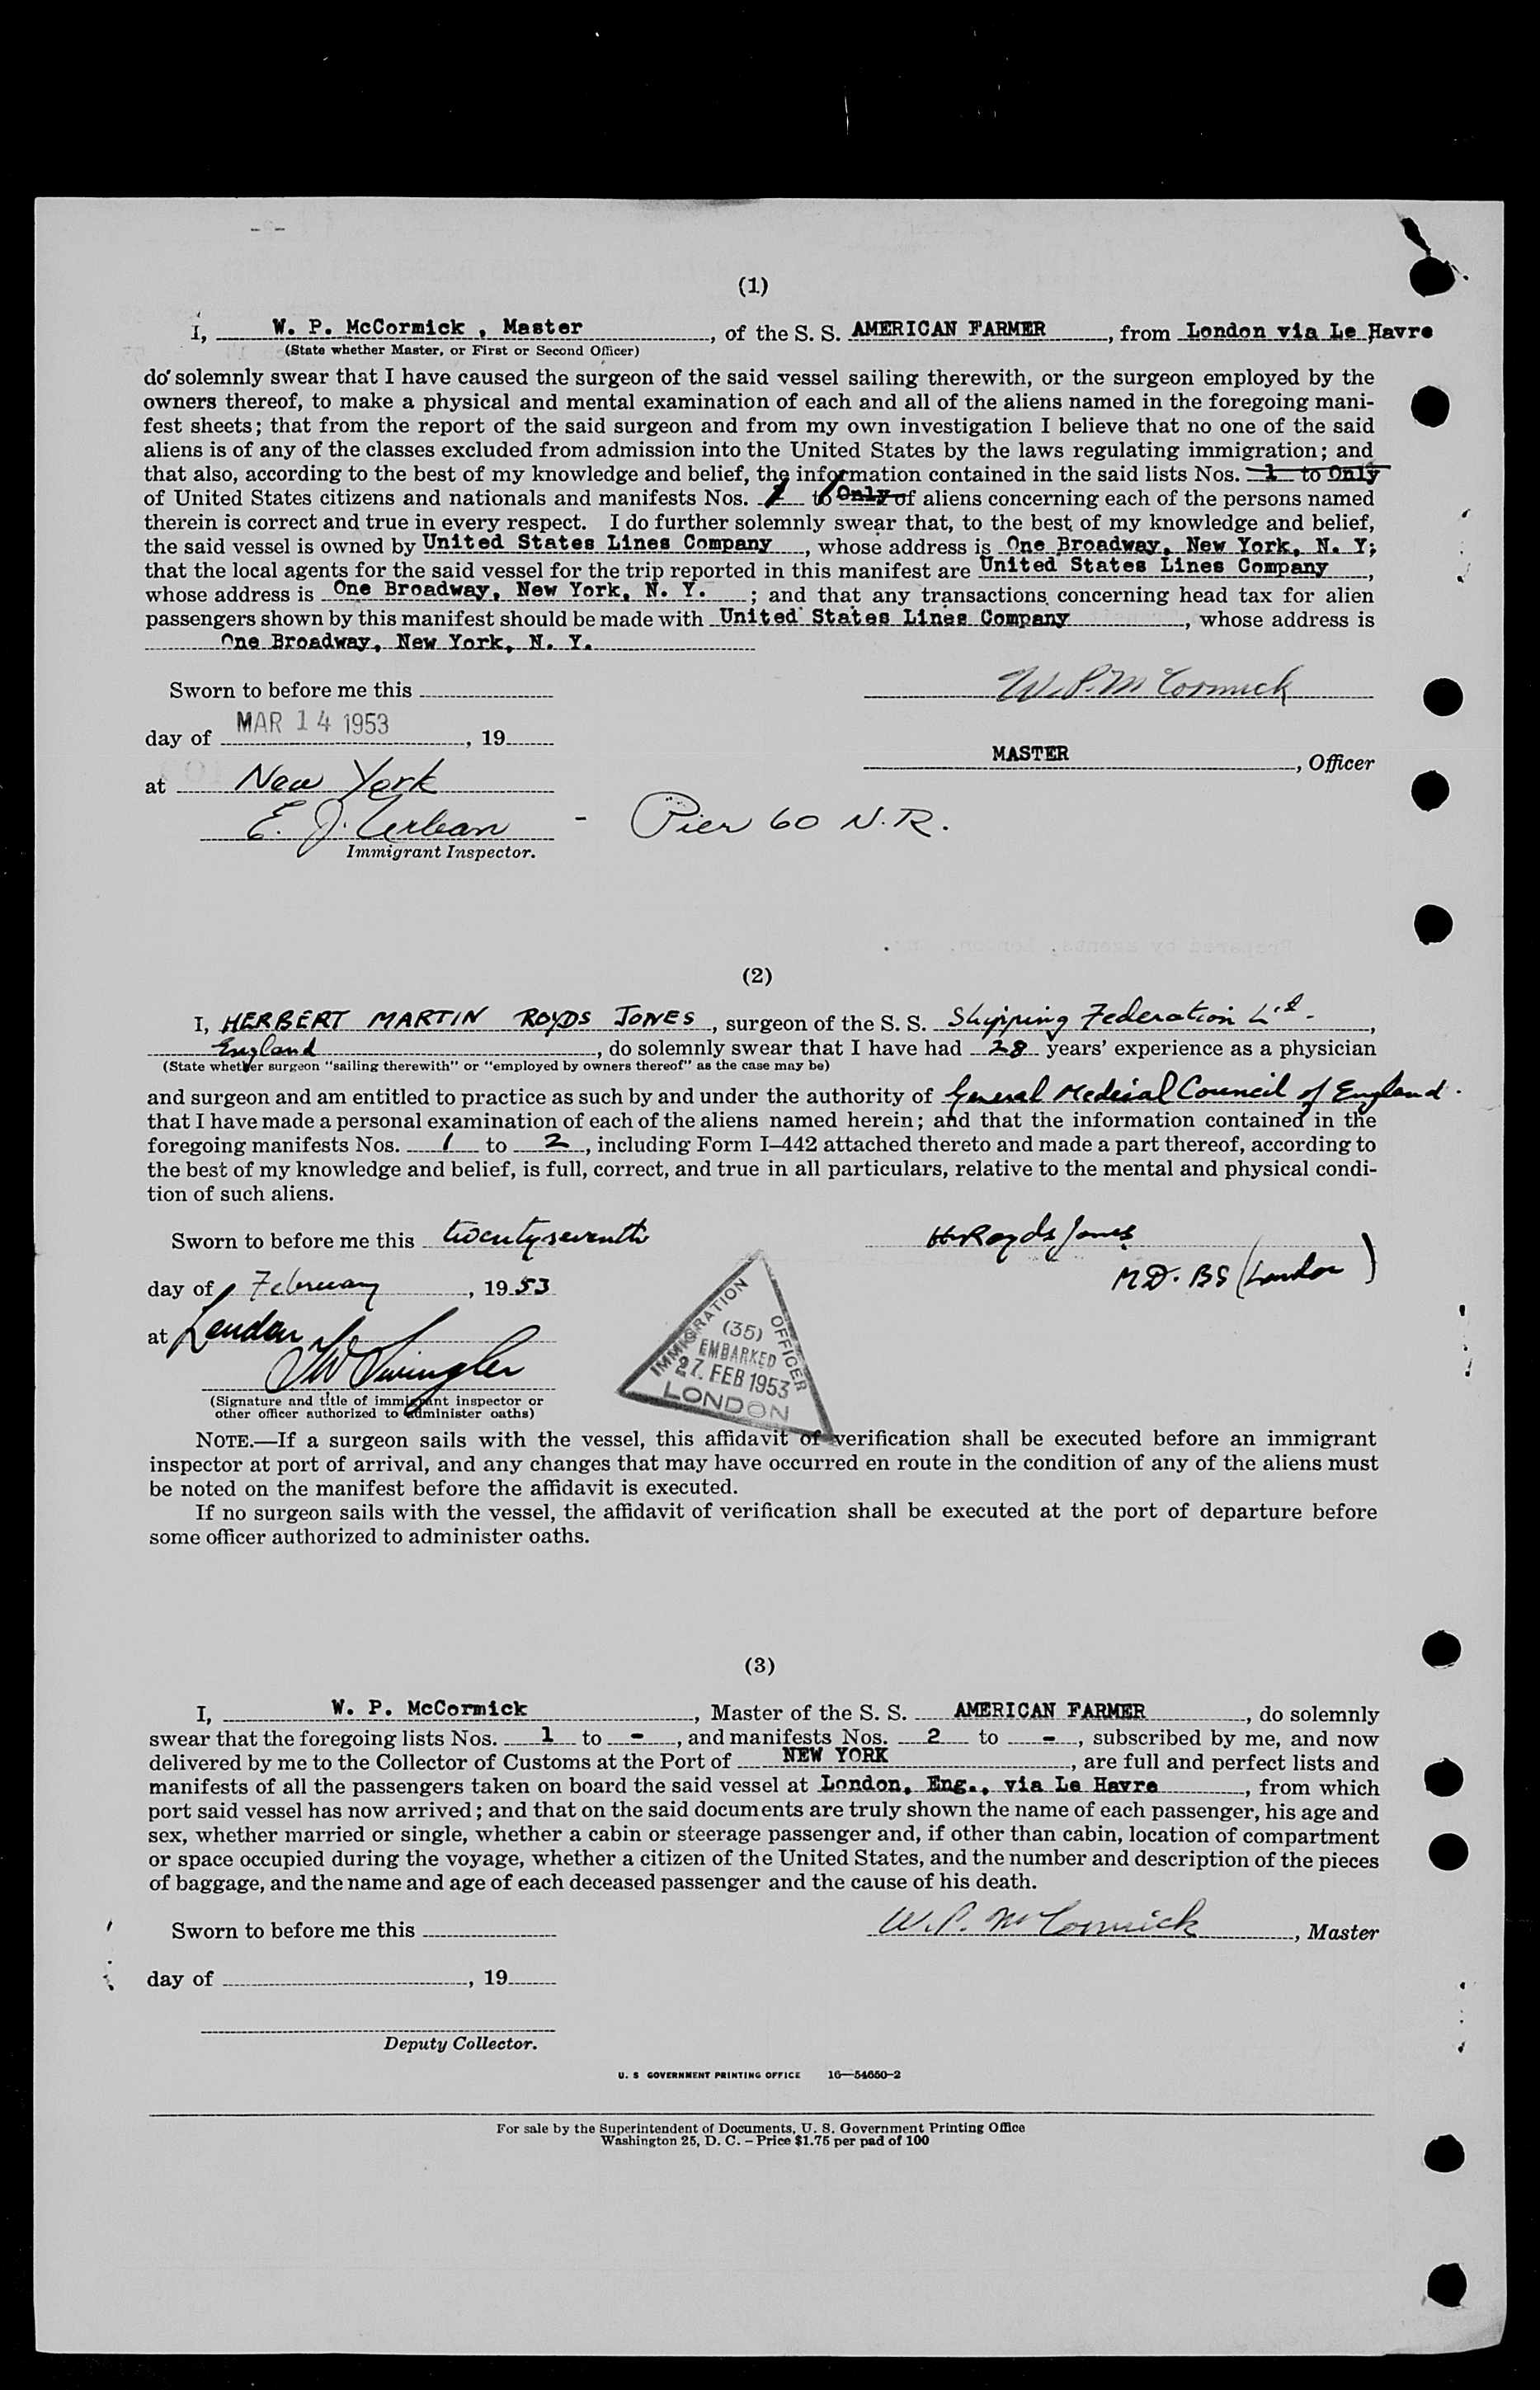 (1)
I, W. P. McCormick , Master, of the S. S. AMERICAN FARMER, from London via Le Havre
(State whether Master, or First or Second Officer)
do solemnly swear that I have caused the surgeon of the said vessel sailing therewith, or the surgeon employed by the
owners thereof, to make a physical and mental examination of each and all of the aliens named in the foregoing mani-
fest sheets; that from the report of the said surgeon and from my own investigation I believe that no one of the said
aliens is of any of the classes excluded from admission into the United States by the laws regulating immigration; and
that also, according to the best of my knowledge and belief, the information contained in the said lists Nos. 1 to Only
of United States citizens and nationals and manifests Nos. to Only of aliens concerning each of the persons named
therein is correct and true in every respect. I do further solemnly swear that, to the best of my knowledge and belief,
the said vessel is owned by United States Lines Company, whose address is One Broadway, New York, N. Y;
that the local agents for the said vessel for the trip reported in this manifest are United States Lines Company,
whose address is One Broadway, New York, N. Y. ; and that any transactions concerning head tax for alien
passengers shown by this manifest should be made with United States Lines Company, whose address is
One Broadway, New York, N. Y.
Sworn to before me this
W. P. McCormick
day of MAR 14 1953, 19
MASTER, Officer
at New York
E. J. Urban - Pier 60 N.R.
Immigrant Inspector.
(2)
I, HERBERT MARTIN ROYDS JONES, surgeon of the S. S. Shipping Federation Ltd.,
England, do solemnly swear that I have had 28 years' experience as a physician
(State whether surgeon "sailing therewith" or "employed by owners thereof" as the case may be)
and surgeon and am entitled to practice as such by and under the authority of General Medical Council of England.
that I have made a personal examination of each of the aliens named herein; and that the information contained in the
foregoing manifests Nos. 1 to 2, including Form I–442 attached thereto and made a part thereof, according to
the best of my knowledge and belief, is full, correct, and true in all particulars, relative to the mental and physical condi-
tion of such aliens.
Sworn to before me this twentyseventh
H Royds Jones
M.D. BS (London)
day of February, 1953
at London
(Signature and title of immigrant inspector or
other officer authorized to administer oaths)
IMMIGRATION OFFICER
(35)
EMBARKED
27. FEB 1953
LONDON
NOTE.—If a surgeon sails with the vessel, this affidavit of verification shall be executed before an immigrant
inspector at port of arrival, and any changes that may have occurred en route in the condition of any of the aliens must
be noted on the manifest before the affidavit is executed.
If no surgeon sails with the vessel, the affidavit of verification shall be executed at the port of departure before
some officer authorized to administer oaths.
(3)
I, W. P. McCormick, Master of the S. S. AMERICAN FARMER, do solemnly
swear that the foregoing lists Nos. 1 to -, and manifests Nos. 2 to -, subscribed by me, and now
delivered by me to the Collector of Customs at the Port of NEW YORK, are full and perfect lists and
manifests of all the passengers taken on board the said vessel at London, Eng., via Le Havre, from which
port said vessel has now arrived; and that on the said documents are truly shown the name of each passenger, his age and
sex, whether married or single, whether a cabin or steerage passenger and, if other than cabin, location of compartment
or space occupied during the voyage, whether a citizen of the United States, and the number and description of the pieces
of baggage, and the name and age of each deceased passenger and the cause of his death.
Sworn to before me this
W. P. McCormick, Master
day of , 19
Deputy Collector.
U. S GOVERNMENT PRINTING OFFICE 16—54650-2
For sale by the Superintendent of Documents, U. S. Government Printing Office
Washington 25, D. C. - Price $1.75 per pad of 100